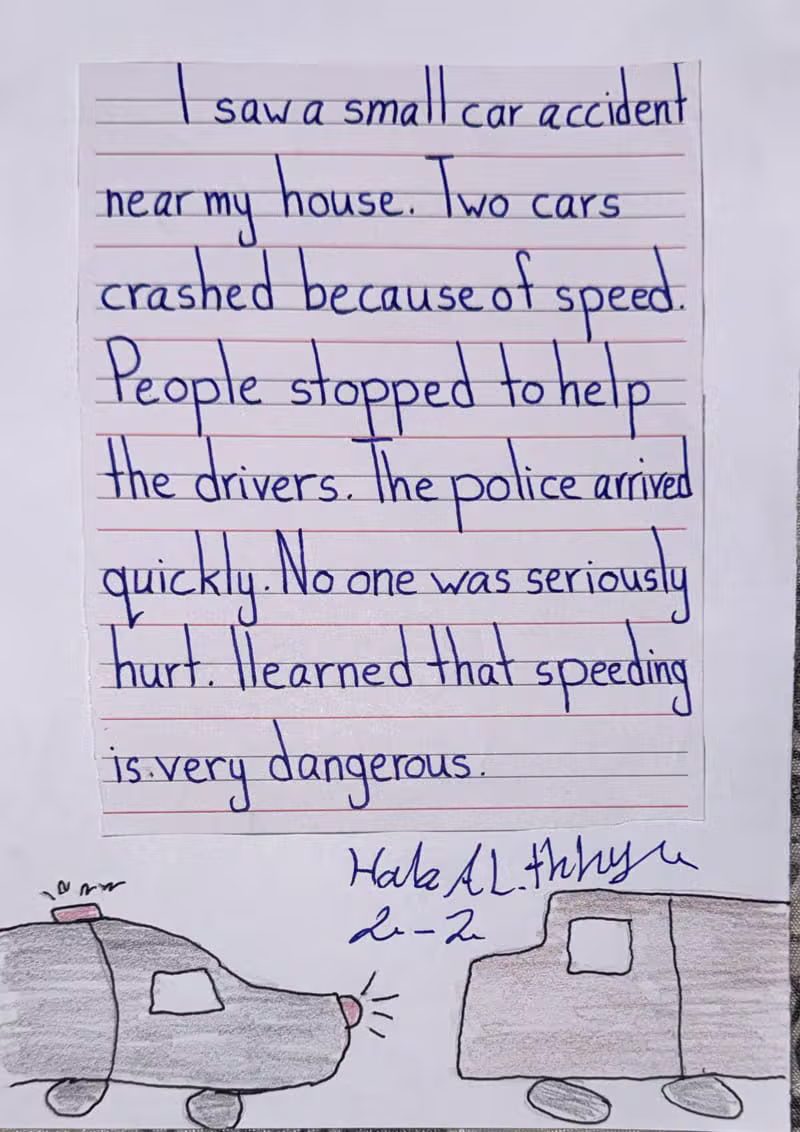 I saw a small car accident
near my house. Two cars
crashed because of speed.
People stopped to help
the drivers. The police arrived
quickly. No one was seriously
hurt. I learned that speeding
is very dangerous.
2-2